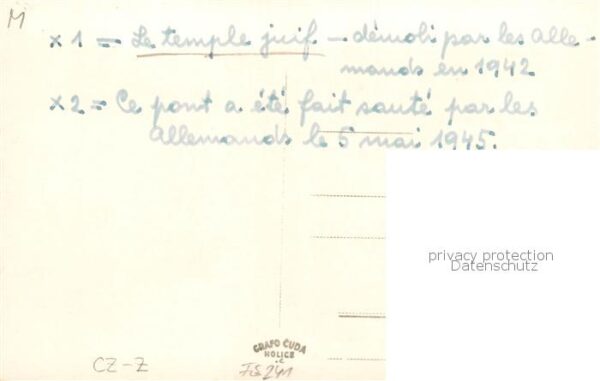 M
x 1 = Le temple juif – démoli par les Alle-
mands en 1942
x 2 = Ce pont a été fait sauté par les
Allemands le 5 mai 1945.
privacy protection
Datenschutz
GRAFO ČUDA
HOLICE
CZ-Z